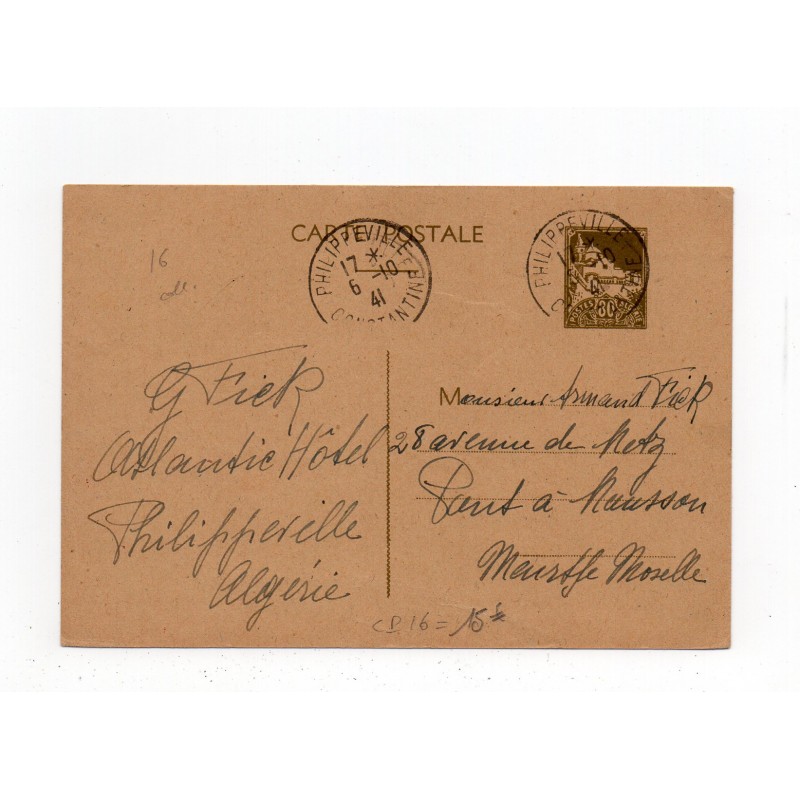 CARTE POSTALE
PHILIPPEVILLE
17 *
6 -10
41
CONSTANTINE
PHILIPPEVILLE
17 *
-10
41
POSTES 80 ALGERIE
16
coll.
G Fick
Atlantic Hôtel
Philippeville
Algérie
Monsieur Armand Fick
28 avenue de Metz
Pont à Mousson
Meurthe Moselle
CP 16 = 15